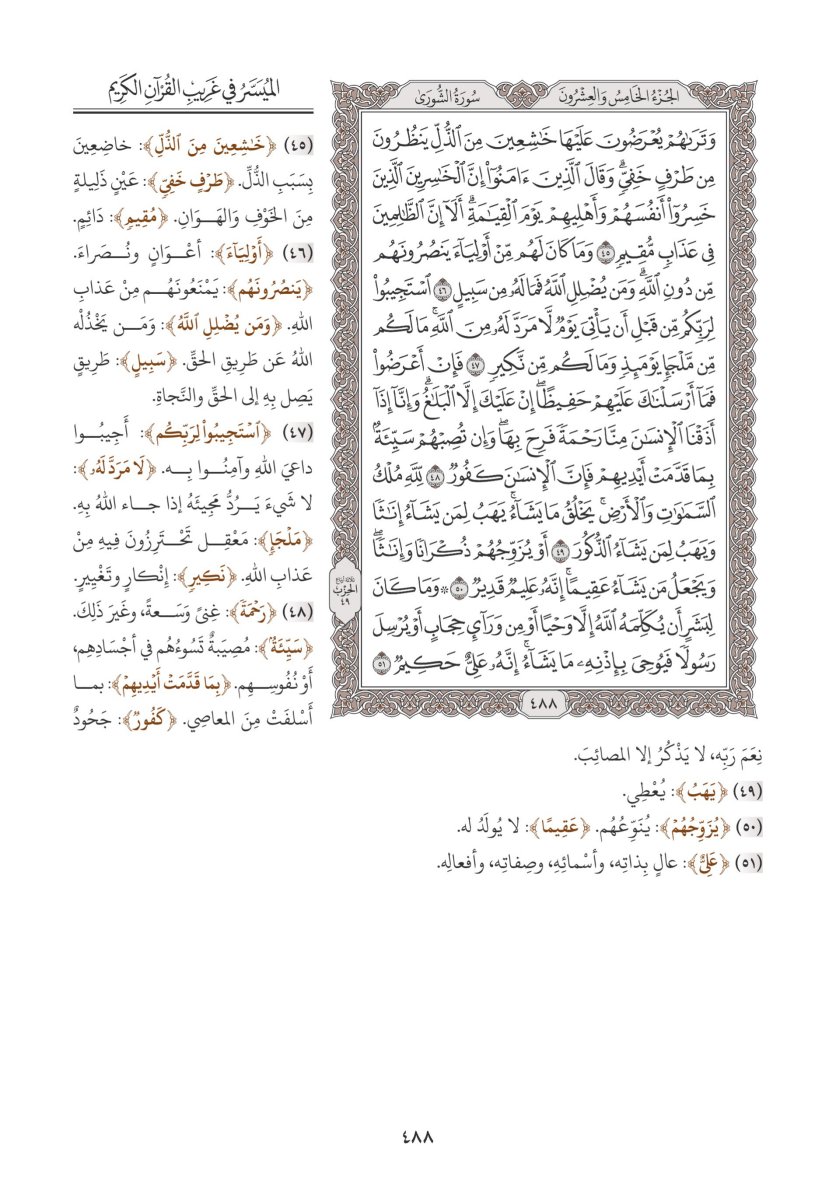 الجُزْءُ الخَامِسُ وَالعِشْرُونَ
سُورَةُ الشُّورَىٰ
وَتَرَىٰهُمْ يُعْرَضُونَ عَلَيْهَا خَٰشِعِينَ مِنَ ٱلذُّلِّ يَنظُرُونَ
مِن طَرْفٍ خَفِيٍّۗ وَقَالَ ٱلَّذِينَ ءَامَنُوٓاْ إِنَّ ٱلْخَٰسِرِينَ ٱلَّذِينَ
خَسِرُوٓاْ أَنفُسَهُمْ وَأَهْلِيهِمْ يَوْمَ ٱلْقِيَٰمَةِۗ أَلَآ إِنَّ ٱلظَّٰلِمِينَ
فِي عَذَابٍ مُّقِيمٍ ٤٥ وَمَا كَانَ لَهُم مِّنْ أَوْلِيَآءَ يَنصُرُونَهُم
مِّن دُونِ ٱللَّهِۗ وَمَن يُضْلِلِ ٱللَّهُ فَمَا لَهُۥ مِن سَبِيلٍ ٤٦ ٱسْتَجِيبُواْ
لِرَبِّكُم مِّن قَبْلِ أَن يَأْتِيَ يَوْمٌ لَّا مَرَدَّ لَهُۥ مِنَ ٱللَّهِۚ مَا لَكُم
مِّن مَّلْجَإٍ يَوْمَئِذٍ وَمَا لَكُم مِّن نَّكِيرٍ ٤٧ فَإِنْ أَعْرَضُواْ
فَمَآ أَرْسَلْنَٰكَ عَلَيْهِمْ حَفِيظًاۖ إِنْ عَلَيْكَ إِلَّا ٱلْبَلَٰغُۗ وَإِنَّآ إِذَآ
أَذَقْنَا ٱلْإِنسَٰنَ مِنَّا رَحْمَةً فَرِحَ بِهَاۖ وَإِن تُصِبْهُمْ سَيِّئَةٌۢ
بِمَا قَدَّمَتْ أَيْدِيهِمْ فَإِنَّ ٱلْإِنسَٰنَ كَفُورٌ ٤٨ لِّلَّهِ مُلْكُ
ٱلسَّمَٰوَٰتِ وَٱلْأَرْضِۚ يَخْلُقُ مَا يَشَآءُۚ يَهَبُ لِمَن يَشَآءُ إِنَٰثًا
وَيَهَبُ لِمَن يَشَآءُ ٱلذُّكُورَ ٤٩ أَوْ يُزَوِّجُهُمْ ذُكْرَانًا وَإِنَٰثًاۖ
وَيَجْعَلُ مَن يَشَآءُ عَقِيمًاۚ إِنَّهُۥ عَلِيمٌ قَدِيرٌ ٥٠ ۞ وَمَا كَانَ
لِبَشَرٍ أَن يُكَلِّمَهُ ٱللَّهُ إِلَّا وَحْيًا أَوْ مِن وَرَآيِٕ حِجَابٍ أَوْ يُرْسِلَ
رَسُولًا فَيُوحِيَ بِإِذْنِهِۦ مَا يَشَآءُۚ إِنَّهُۥ عَلِيٌّ حَكِيمٌ ٥١
ثلاثة أرباع
الحزب
٤٩
٤٨٨
المُيَسَّرُ فِي غَرِيبِ القُرْآنِ الكَرِيمِ
(٤٥) ﴿خَٰشِعِينَ مِنَ ٱلذُّلِّ﴾: خاضِعِينَ
بِسَبَبِ الذُّلِّ. ﴿طَرْفٍ خَفِيٍّ﴾: عَيْنٍ ذَلِيلةٍ
مِنَ الخَوْفِ وَالهَوَانِ. ﴿مُقِيمٍ﴾: دَائِمٍ.
(٤٦) ﴿أَوْلِيَآءَ﴾: أعْوَانٍ ونُصَراءَ.
﴿يَنصُرُونَهُم﴾: يَمْنَعُونَهُم مِنْ عَذابِ
اللهِ. ﴿وَمَن يُضْلِلِ ٱللَّهُ﴾: وَمَن يَخْذُلْه
اللهُ عَن طَرِيقِ الحَقِّ. ﴿سَبِيلٍ﴾: طَرِيقٍ
يَصِل بِهِ إلى الحَقِّ والنَّجاةِ.
(٤٧) ﴿ٱسْتَجِيبُواْ لِرَبِّكُم﴾: أَجِيبُوا
داعيَ اللهِ وآمِنُوا بِه. ﴿لَّا مَرَدَّ لَهُۥ﴾:
لا شَيءَ يَرُدُّ مَجِيئَهُ إذا جاء اللهُ بِهِ.
﴿مَلْجَإٍ﴾: مَعْقِل تَحْتَرِزُونَ فِيهِ مِنْ
عَذابِ اللهِ. ﴿نَكِيرٍ﴾: إنْكارٍ وتَغْيِيرٍ.
(٤٨) ﴿رَحْمَةً﴾: غِنىً وَسَعةً، وغَيرَ ذَلِكَ.
﴿سَيِّئَةٌۢ﴾: مُصِيبَةٌ تَسُوءُهُم في أجْسادِهِم،
أَوْ نُفُوسِهِم. ﴿بِمَا قَدَّمَتْ أَيْدِيهِمْ﴾: بما
أَسْلفَتْ مِنَ المعاصِي. ﴿كَفُورٌ﴾: جَحُودٌ
نِعَمَ رَبِّه، لا يَذْكُرُ إلا المصائِبَ.
(٤٩) ﴿يَهَبُ﴾: يُعْطِي.
(٥٠) ﴿يُزَوِّجُهُمْ﴾: يُنَوِّعُهُم. ﴿عَقِيمًا﴾: لا يُولَدُ له.
(٥١) ﴿عَلِيٌّ﴾: عالٍ بِذاتِه، وأسْمائِهِ، وصِفاتِه، وأفعالِه.
٤٨٨